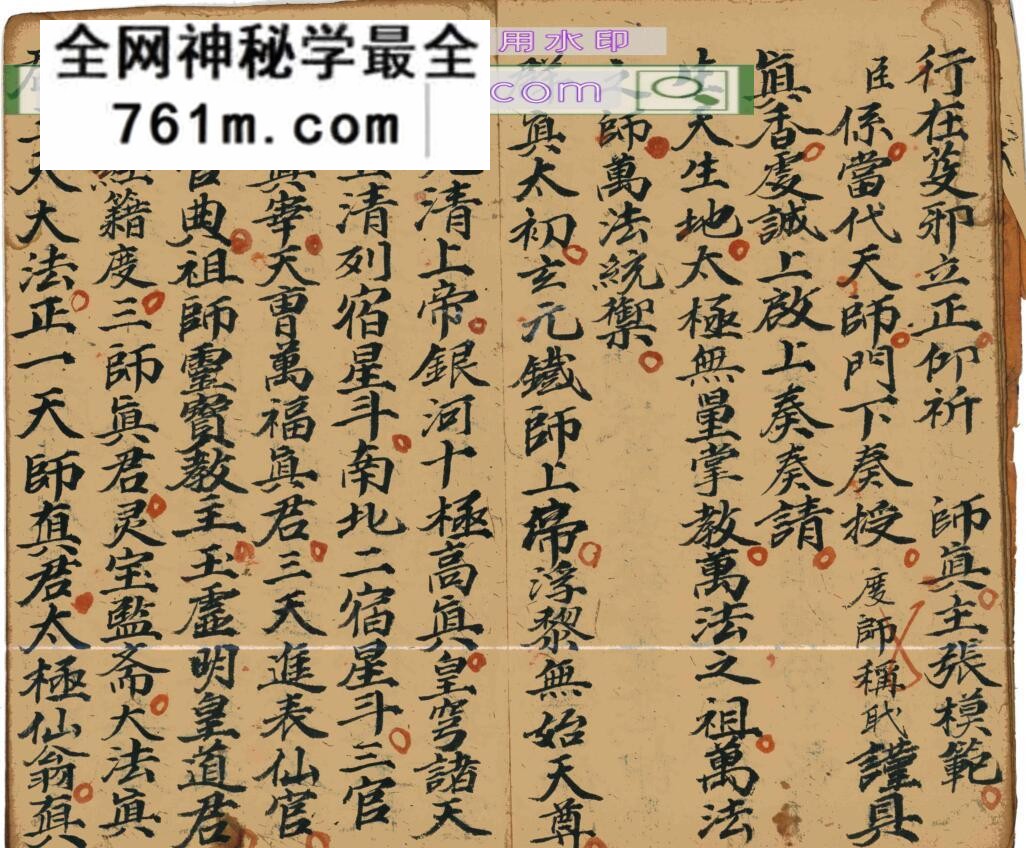 行在芟邪立正仰祈 師眞主張模範
臣係當代天師門下奏授 度師稱職謹具
眞香虔誠上啟上奏奏請
天生地太極無量掌教萬法之祖萬法
師萬法統禦
眞太初玄元鐵師上帝浮黎無始天尊
清上帝銀河十極高眞皇穹諸天
清列宿星斗南北二宿星斗三官
眞宰天曹萬福眞君三天進表仙官
官典祖師靈寶教主玉虛明皇道君
經籍度三師眞君灵宝監斋大法眞
天大法正一天師眞君太極仙翁眞
全网神秘学最全
761m.com
用水印
com